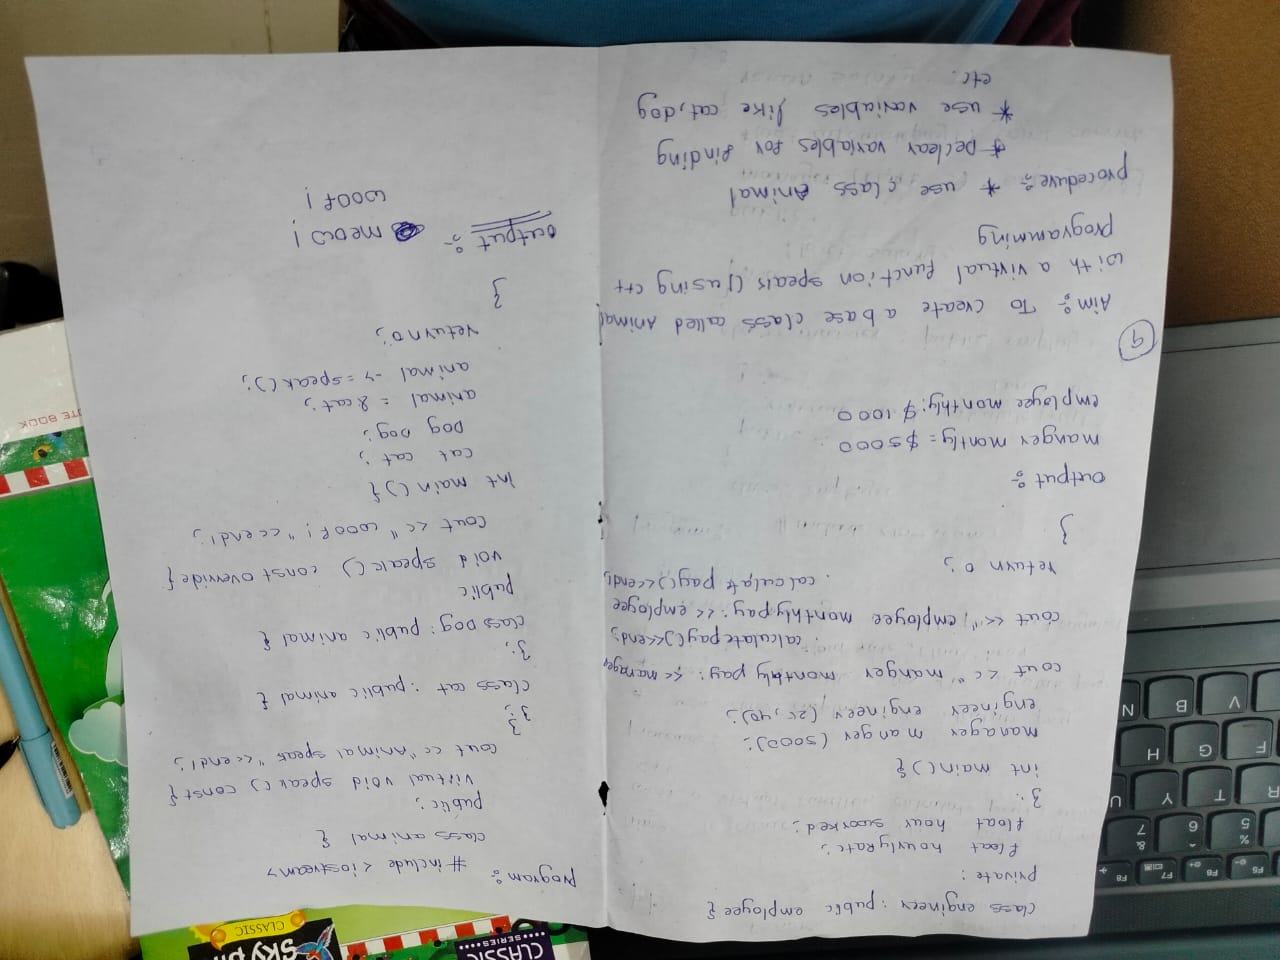 class engineer : public employee {
private :
float hourlyRate ;
float hour sworked ;
} ;
int main() {
manager manger (5000);
engineer engineer (25, 40);
cout << " manger monthly pay: << manager
. calculatepay()<<end;
cout << " , employee monthly pay: << employee
. calculate pay()<<endl;
return 0 ;
}
output :-
manger montly = $5000
employee monthly: $ 1000
9
Aim :- To create a base class called Animal
with a virtual function speak () using c++
programming
procedure :- * use class Animal
* Declear variables for finding
* use variables like cat, dog
etc.
program :-
# include <iostream>
class animal {
public ;
virtual void speak() const {
cout << "Animal speak " << endl ;
}
} ;
class cat : public animal {
} ;
class Dog : public animal {
public
void speak () const override {
cout << " woof ! " << endl ;
int main () {
cat cat ;
Dog Dog ;
animal = &cat ;
animal -> = speak () ;
return 0 ;
}
output :- meow !
woof !
CLASSIC
SERIES
CLASSIC
NOTE BOOK
F5
F6
F7
F8
%
5
^
6
&
7
R
T
Y
U
F
G
H
V
B
N